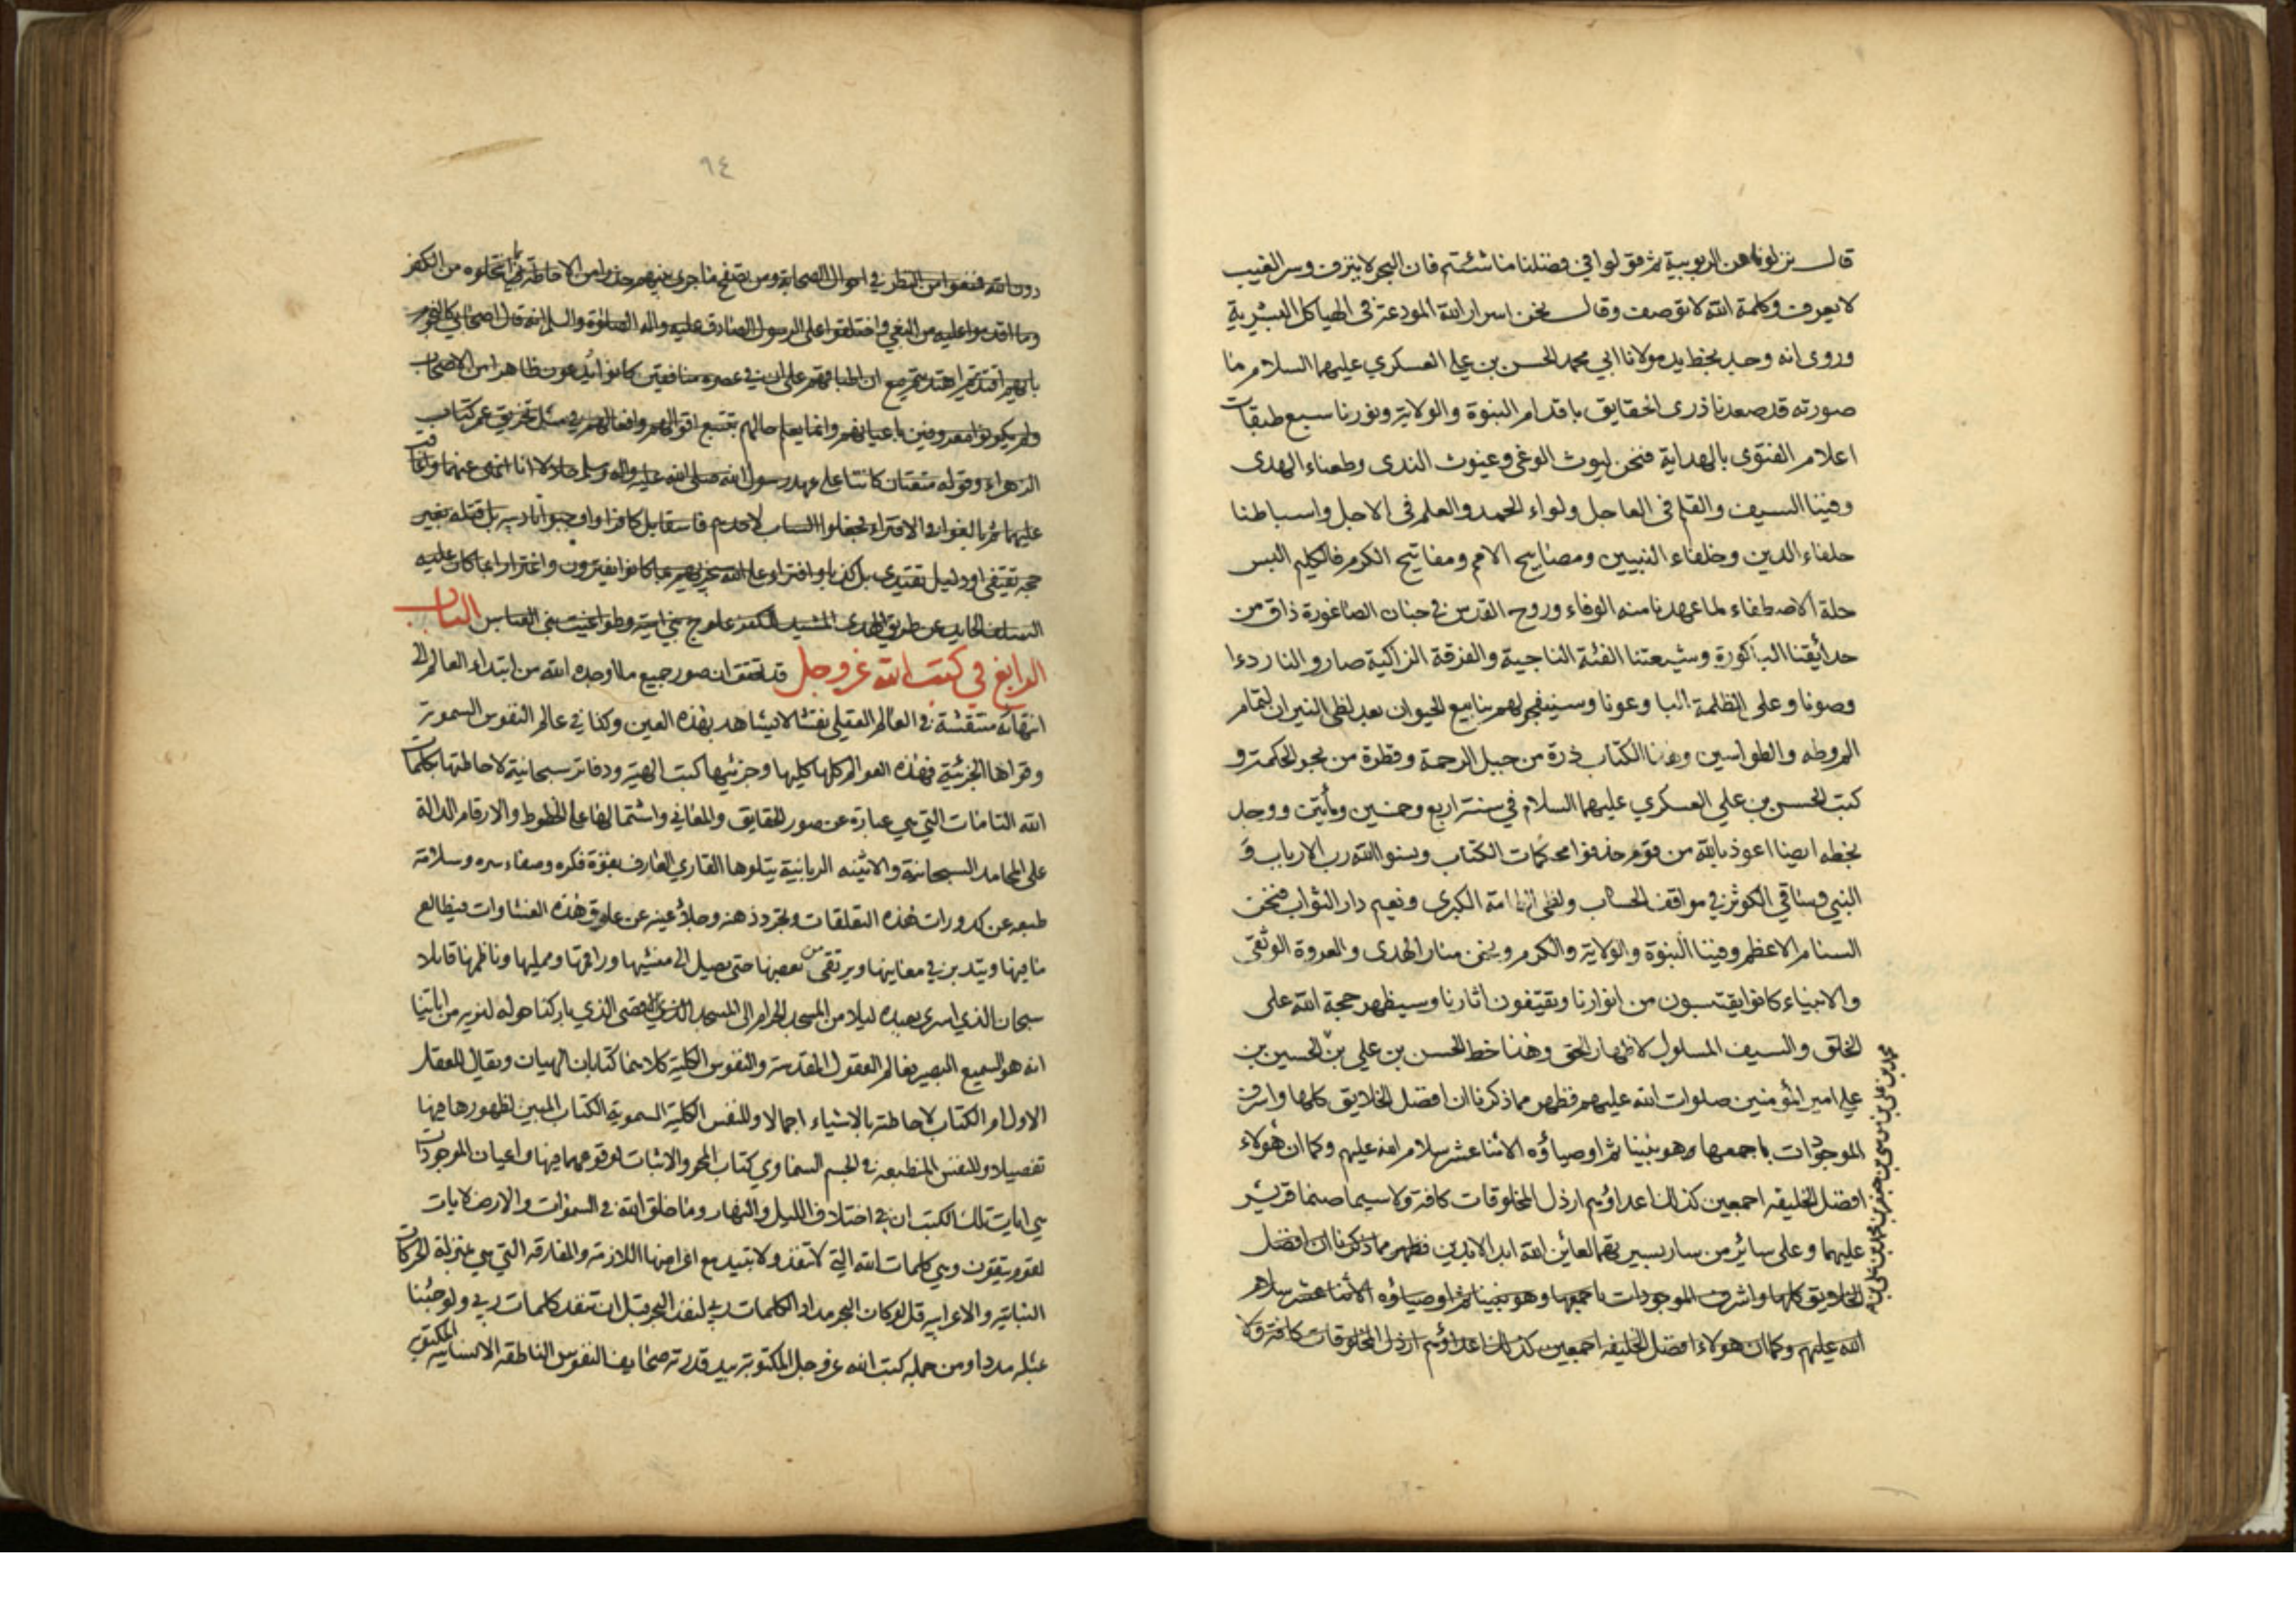 قال نزلونا عن الربوبية ثم قولوا في فضلنا ما شئتم فان البحر لا ينزف وسر الغيب
لا يعرف وكلمة الله لا توصف وقال نحن اسرار الله المودعة في الهياكل البشرية
وروى انه وجد بخط يد مولانا ابي محمد الحسن بن علي العسكري عليهما السلام ما
صورته قد صعدنا ذرى الحقايق باقدام النبوة والولاية ونورنا سبع طبقات
اعلام الفتوى بالهداية فنحن ليوث الوغى وغيوث الندى وطعناء الهدى
وفينا السيف والقلم في العاجل ولواء الحمد والعلم في الاجل واسباطنا
حلفاء الدين وخلفاء النبيين ومصابيح الامم ومفاتيح الكرم فالكليم البس
حلة الاصطفاء لما عهدنا منه الوفاء وروح القدس في جنان الصاغورة ذاق من
حدائقنا الباكورة وشيعتنا الفئة الناجية والفرقة الزاكية صاروا لنا ردءا
وصونا وعلى الظلمة البا وعونا وسينفجر لهم ينابيع الحيوان بعد لظى النيران لتمام
الم وطه والطواسين وهذا الكتاب ذرة من جبل الرحمة وقطرة من بحر الحكمة و
كتب الحسن بن علي العسكري عليهما السلام في سنة اربع وخمسين ومأتين ووجد
بخطه ايضا اعوذ بالله من قوم حذفوا محكمات الكتاب ونسوا الله رب الارباب و
النبي وساقي الكوثر في مواقف الحساب ولظى الطامة الكبرى ونعيم دار الثواب فنحن
السنام الاعظم وفينا النبوة والولاية والكرم ونحن منار الهدى والعروة الوثقى
والانبياء كانوا يقتبسون من انوارنا ويقتفون اثارنا وسيظهر حجة الله على
الخلق والسيف المسلول لاظهار الحق وهذا خط الحسن بن علي بن الحسين بن
محمد بن علي بن موسى بن جعفر بن محمد بن علي بن
علي امير المؤمنين صلوات الله عليهم فظهر مما ذكرنا ان افضل الخلايق كلها واشرف
الموجودات باجمعها وهو نبينا ثم اوصياؤه الاثنا عشر سلام الله عليهم وكما ان هؤلاء
افضل الخليقه اجمعين كذلك اعداؤهم ارذل المخلوقات كافة ولا سيما صنما قريش
عليهما وعلى سائر من سار بسيرتهما لعائن الله ابد الابدين فظهر مما ذكرنا ان افضل
الخلايق كلها واشرف الموجودات باجمعها وهو نبينا ثم اوصياؤه الاثنا عشر سلام
الله عليهم وكما ان هولاء افضل الخليفه اجمعين كذلك اعداؤهم ارذل المخلوقات كافة ولا
٩٤
دون الله فمنعوا من النظر في احوال الصحابة ومن تصفح ما جرى بينهم حذرا من الاحاطة بما انتحلوه من الكفر
وما اقدموا عليه من البغي واختلقوا على الرسول الصادق عليه واله الصلوة والسلم انه قال اصحابي كالنجوم
بايهم اقتديتم اهتديتم مع ان اطباقهم على ان في عصره منافقين كانوا يدعون ظاهرا من الاصحاب
ولم يكونوا معروفين باعيانهم وانما يعلم حالهم بتتبع اقوالهم وافعالهم في مثل تخريق عمر كتاب
الزهراء وقوله متعتان كانتا على عهد رسول الله صلى الله عليه واله وسلم حلالا انا انهى عنهما واعاقب
عليهما ثم بالغوا في الافتراء فجعلوا الساب لاحدهم فاسقا بل كافرا واوجبوا تاديبه بل قتله بغير
حجه تقتفى او دليل تقتدى بل كذبا وافتراء على الله سيجزيهم بما كانوا يفترون واغترارا بما كان عليه
السلف الحايد عن طريق الهدى المشيد للكفر علوج بني امية وطواغيت بني العباس الباب
الرابع في كتب الله عز وجل قد تحقق ان صور جميع ما اوجده الله من ابتداء العالم الى
انتهائه منتقشة في العالم العقلي نقشا لا يشاهد بهذه العين وكذا في عالم النفوس السموية
وقواها الجزئية فهذه العوالم كلها كليها وجزئيها كتب الهية ودفاتر سبحانية لاحاطتها بكلمات
الله التامات التي هي عبارة عن صور الحقايق والمعاني واشتمالها على الخطوط والارقام الدالة
على المحامد السبحانية والاثنيه الربانية يتلوها القاري العارف بقوة فكره وصفاء سره وسلامة
طبعه عن كدورات هذه التعلقات وتجرد ذهنه وجلاء عينه عن علوق هذه الغشاوات فيطالع
ما فيها ويتدبر في معانيها ويرتقى من بعضها حتى يصيل الى منشيها وراقمها ومميلها وناظمها قايلا
سبحان الذي اسرى بعبده ليلا من المسجد الحرام الى المسجد الاقصى الذي باركنا حوله لنريه من اياتنا
انه هو السميع البصير فعالم العقول المقدسة والنفوس الكلية كلاهما كتابان الهيان ويقال للعقل
الاول ام الكتاب لاحاطته بالاشياء اجمالا وللنفس الكلية السموية الكتاب المبين لظهورها فيها
تفصيلا وللنفس المنطبعه في الجسم السماوي كتاب المحو والاثبات لوقوعهما فيها واعيان الموجودات
هي ايات تلك الكتب ان في اختلاف الليل والنهار وما خلق الله في السموات والارض لايات
لقوم يتقون وهي كلمات الله التي لا تنفد ولا تبيد مع اعراضها اللازمة والمفارقه التي هي بمنزلة الحركات
البنائية والاعرابيه قل لو كان البحر مدادا لكلمات ربي لنفد البحر قبل ان تنفد كلمات ربي ولو جئنا
بمثله مددا ومن جمله كتب الله عز وجل المكتوبة بيد قدرته صحايف النفوس الناطقه الانسانيه المكتوب